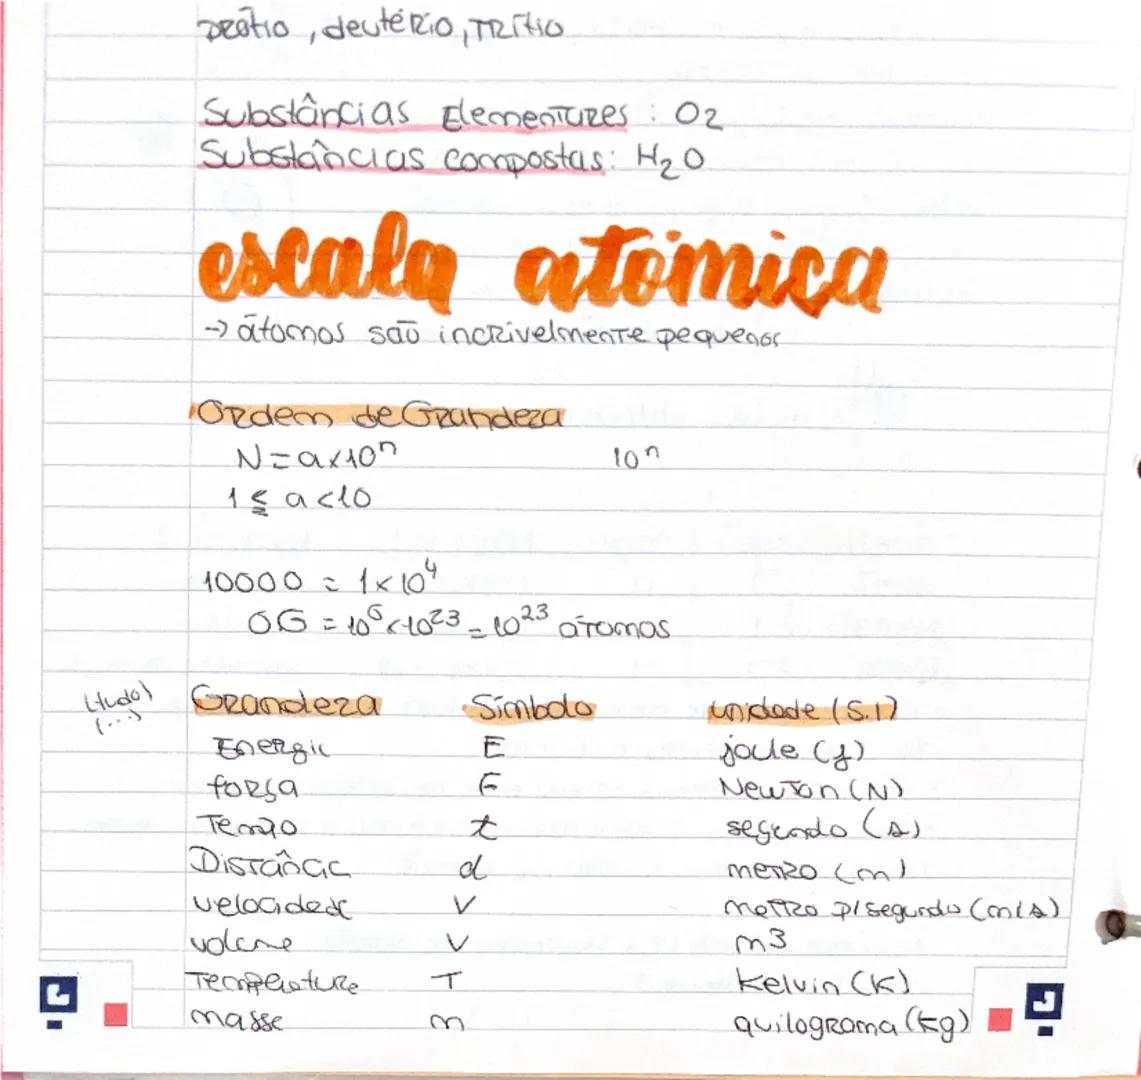 prótio, deutério, Trítio
Substâncias Elementares : O2
Substâncias compostas: H2O
escala atómica
→ átomos são incrivelmente pequenos
Ordem de Grandeza
N = a x 10ⁿ 10ⁿ
1 ≤ a < 10
10000 = 1 x 10⁴
OG = 10²³ = 10²³ átomos
Grandeza Símbolo unidade (S.I)
Energia E joule (J)
força F Newton (N)
Tempo t segundo (s)
Distância d metro (m)
velocidade V metro p/segundo (m/s)
volume V m3
Temperatura T Kelvin (K)
massa m quilograma (kg)